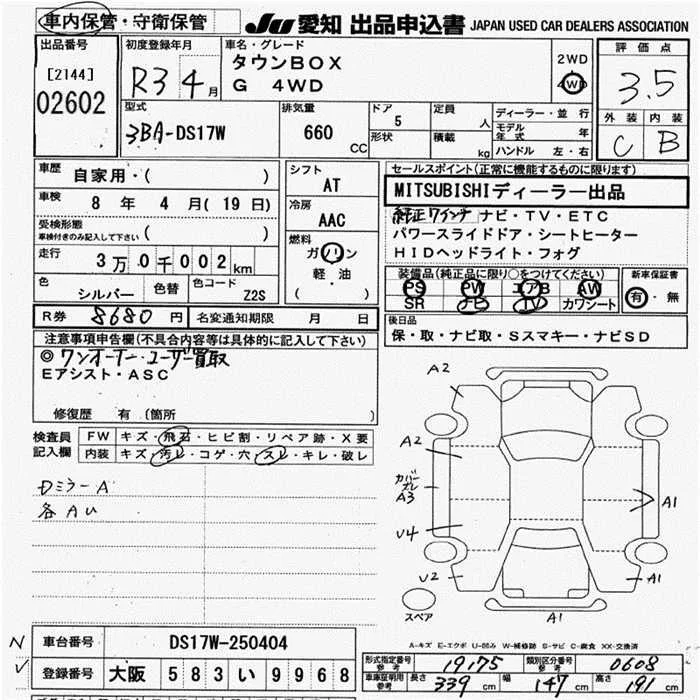 車内保管・守衛保管
JU 愛知 出品申込書 JAPAN USED CAR DEALERS ASSOCIATION
出品番号
[2144]
02602
初度登録年月
R3 4月
車名・グレード
タウンBOX
G 4WD
2WD
4WD
評価点
3.5
外装 内装
C B
型式
3BA-DS17W
排気量
660
CC
ドア
5
形状
定員
人
積載
kg
ディーラー・並行
モデル年式 年
ハンドル 左・右
車歴
自家用・( )
車検
8年 4月(19日)
受検形態
車検付きのみ記入して下さい ( )
走行
3万0千002km
色
シルバー
色替
色コード
Z2S
シフト
AT
冷房
AAC
燃料
ガソリン
軽・油
( )
セールスポイント(正常に機能するものに限ります)
MITSUBISHIディーラー出品
純正7インチ ナビ・TV・ETC
パワースライドドア・シートヒーター
HIDヘッドライト・フォグ
装備品(純正品に限り○をつけてください)
PS PW エアB AW
SR ナビ TV カワシート
新車保証書
有・無
R券 8680円
名変通知期限 月 日
後日品
保・取・ナビ取・Sスマキー・ナビSD
注意事項申告欄(不具合内容等は具体的に記入して下さい)
◎ワンオーナー・ユーザー買取
Eアシスト・ASC
修復歴 有(箇所 )
検査員記入欄
FW キズ・飛石・ヒビ割・リペア跡・X要
内装 キズ・汚レ・コゲ・穴・スレ・キレ・破レ
Dミラー A
各AU
A2
A2
カバーズレ
A3
U4
U2
A1
A1
A1
スペア
A-キズ E-エクボ U-凹み W-補修跡 S-サビ C-腐食 XX-交換済
N
車台番号 DS17W-250404
✓
登録番号 大阪 583 い 9968
形式指定番号 参考 19175
類別区分番号 参考 0608
車庫証明用 参考 長さ 339cm 幅 147cm 高さ 191cm